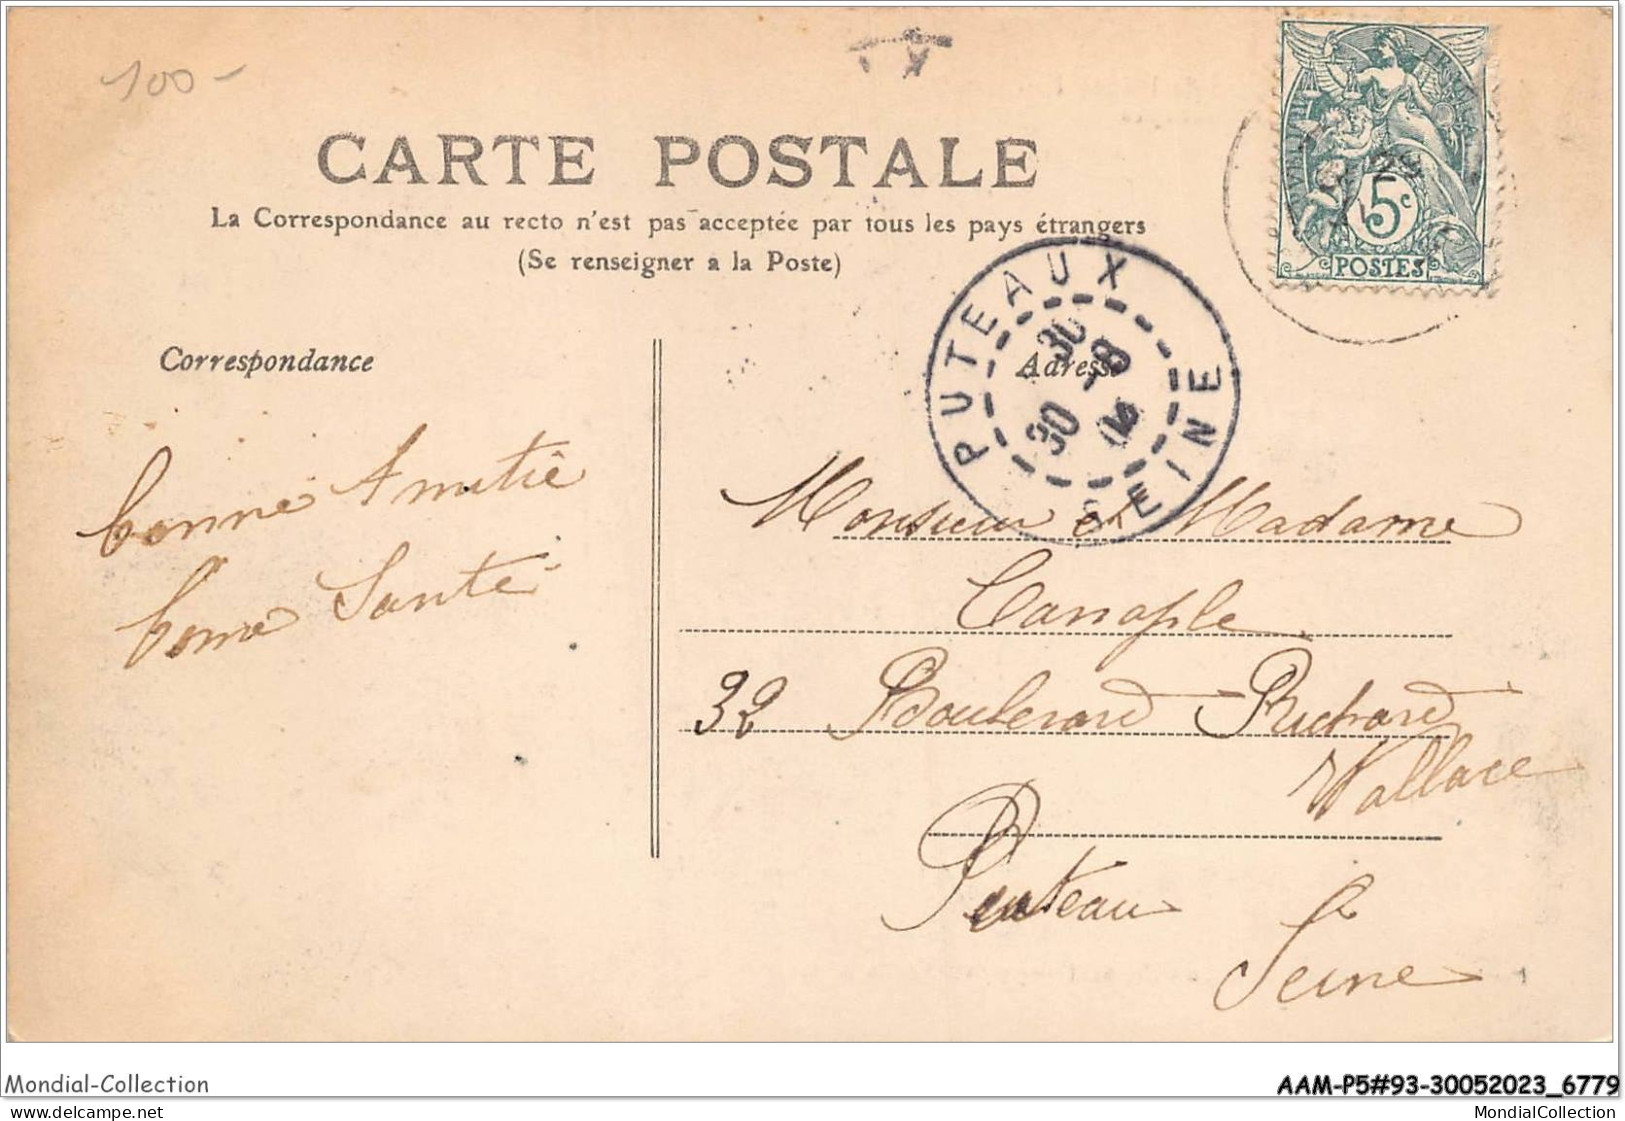 100-
CARTE POSTALE
La Correspondance au recto n'est pas acceptée par tous les pays étrangers
(Se renseigner a la Poste)
5c
POSTES
PUTEAUX
30
30 -8
SEINE
Correspondance
Adresse
bonne Amitié
bonne Santé
Monsieur et Madame
Canaple
32 Boulevard Richard
Wallace
Puteau
Seine
Mondial-Collection
AAM-P5#93-30052023_6779
delcampe.net
MondialCollection